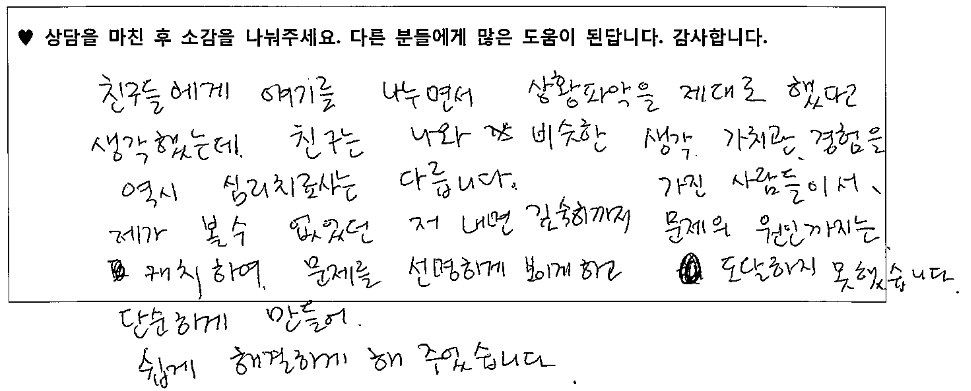 ♥ 상담을 마친 후 소감을 나눠주세요. 다른 분들에게 많은 도움이 된답니다. 감사합니다.
친구들에게 얘기를 나누면서 상황파악을 제대로 했다고
생각했는데, 친구는 나와 비슷한 생각, 가치관, 경험을
가진 사람들이서,
문제의 원인까지는
도달하지 못했습니다.
역시 심리치료사는 다릅니다.
제가 볼수 없었던 저 내면 깊숙히까지
캐치하여, 문제를 선명하게 보이게하고
단순하게 만들어,
쉽게 해결하게 해 주었습니다.